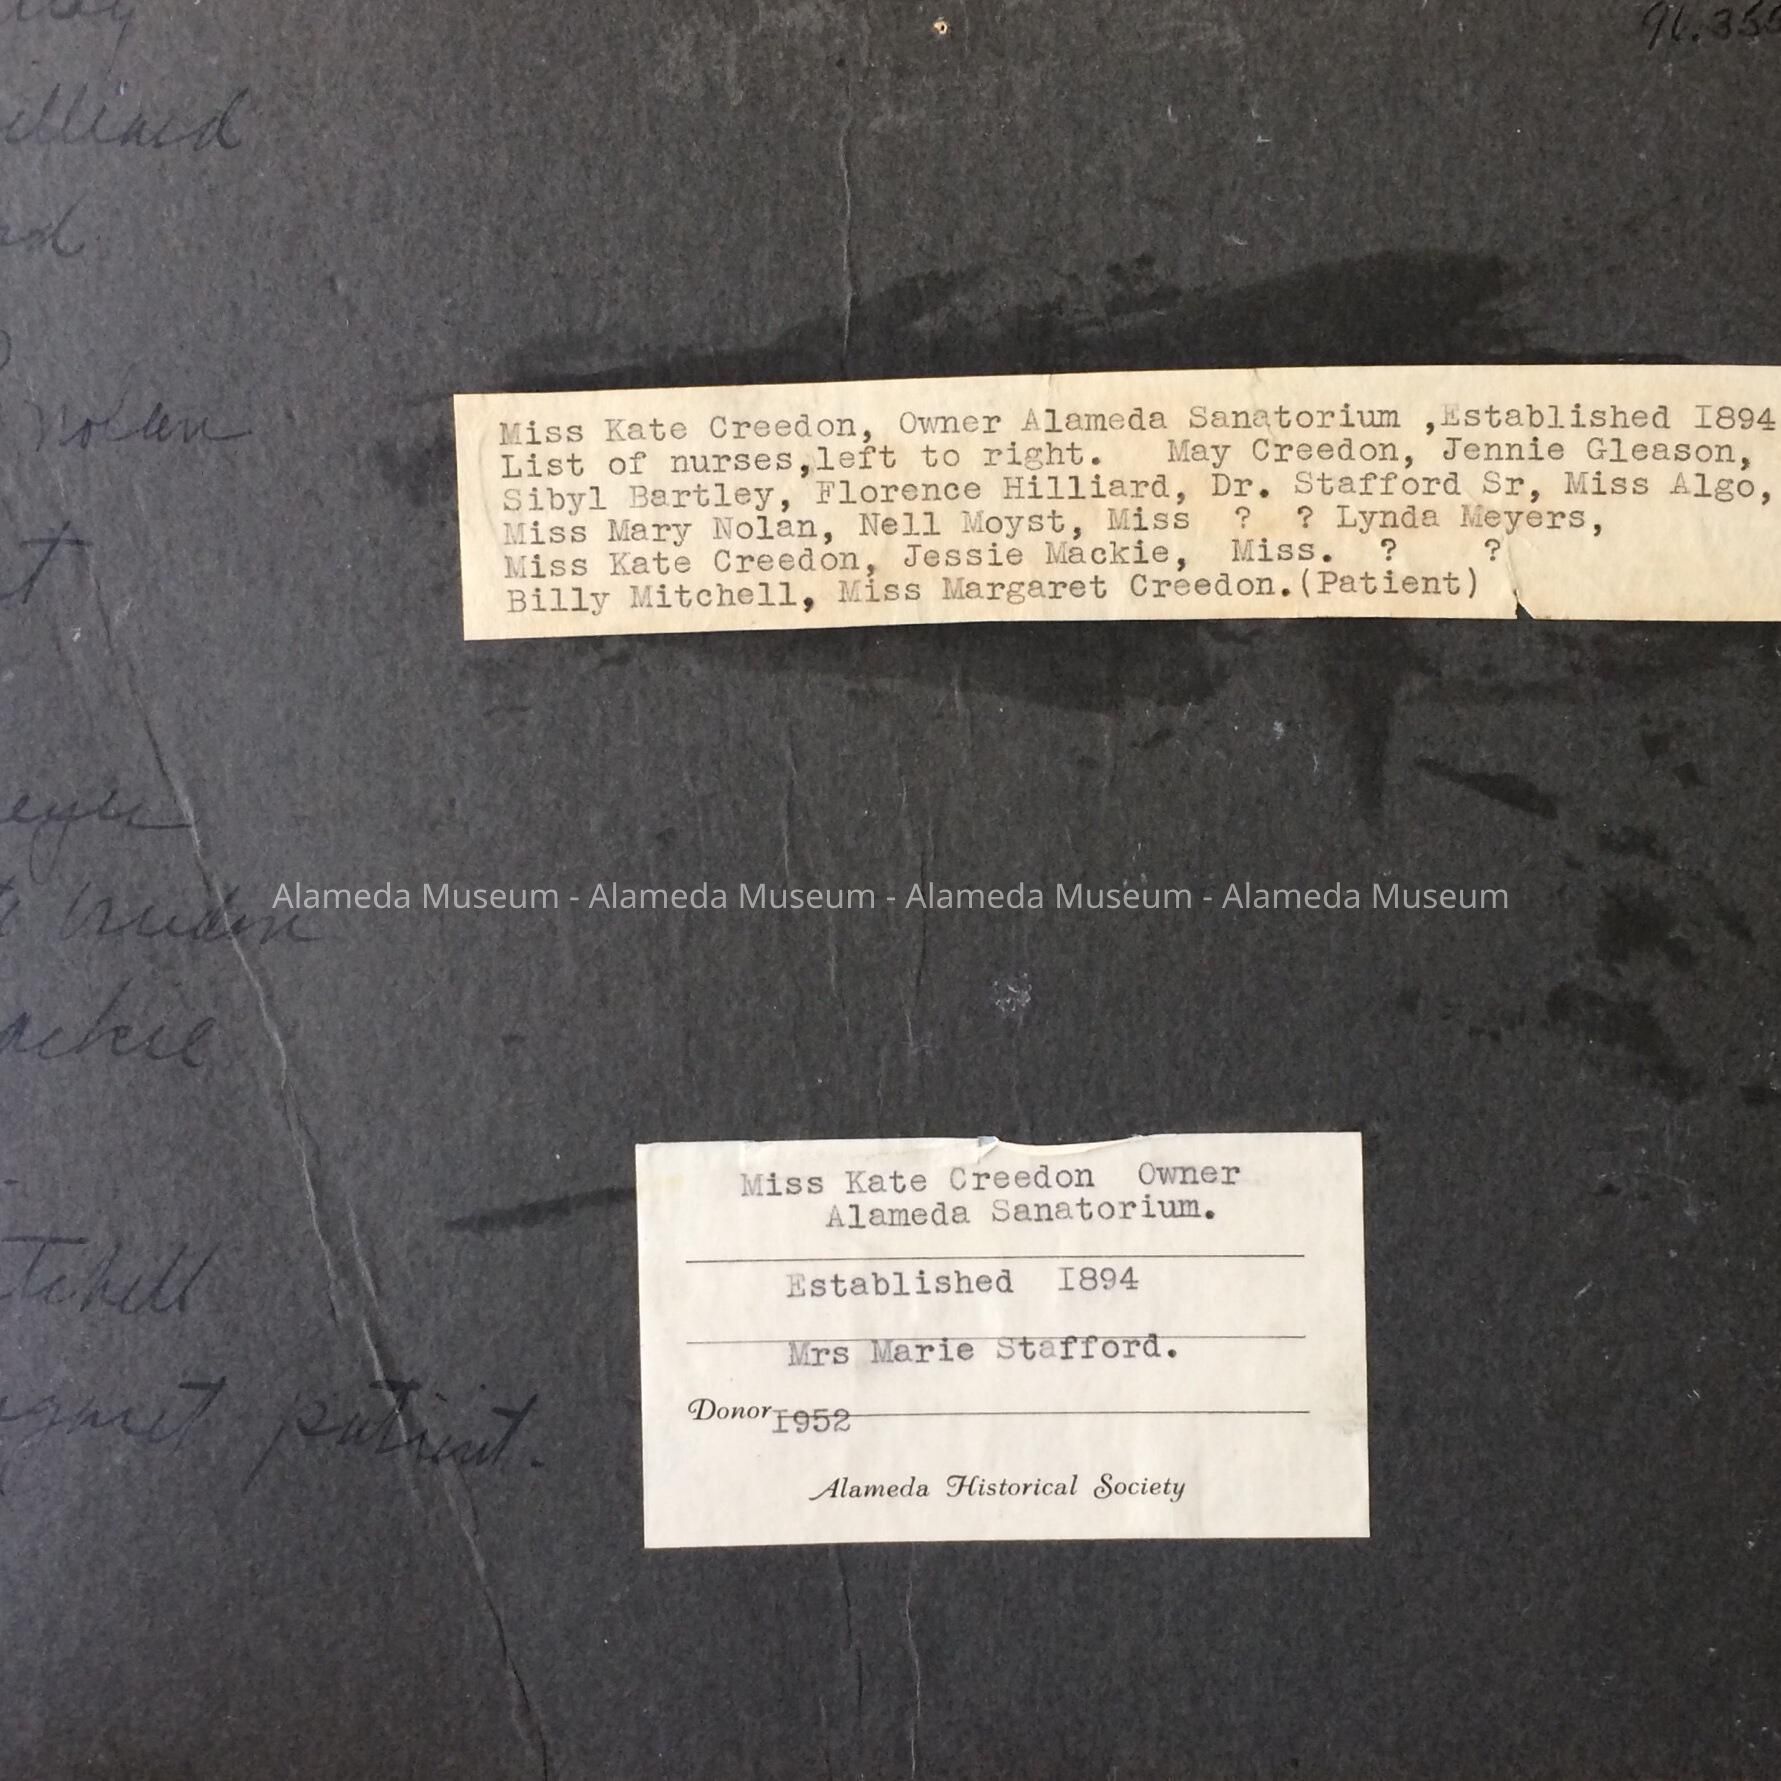 Nolan
Miss Kate Creedon, Owner Alameda Sanatorium ,Established I894
List of nurses,left to right. May Creedon, Jennie Gleason,
Sibyl Bartley, Florence Hilliard, Dr. Stafford Sr, Miss Algo,
Miss Mary Nolan, Nell Moyst, Miss ? ? Lynda Meyers,
Miss Kate Creedon, Jessie Mackie, Miss. ? ?
Billy Mitchell, Miss Margaret Creedon.(Patient)
Alameda Museum - Alameda Museum - Alameda Museum - Alameda Museum
Miss Kate Creedon Owner
Alameda Sanatorium.
Established I894
Mrs Marie Stafford.
Donor I952
patient.
Alameda Historical Society